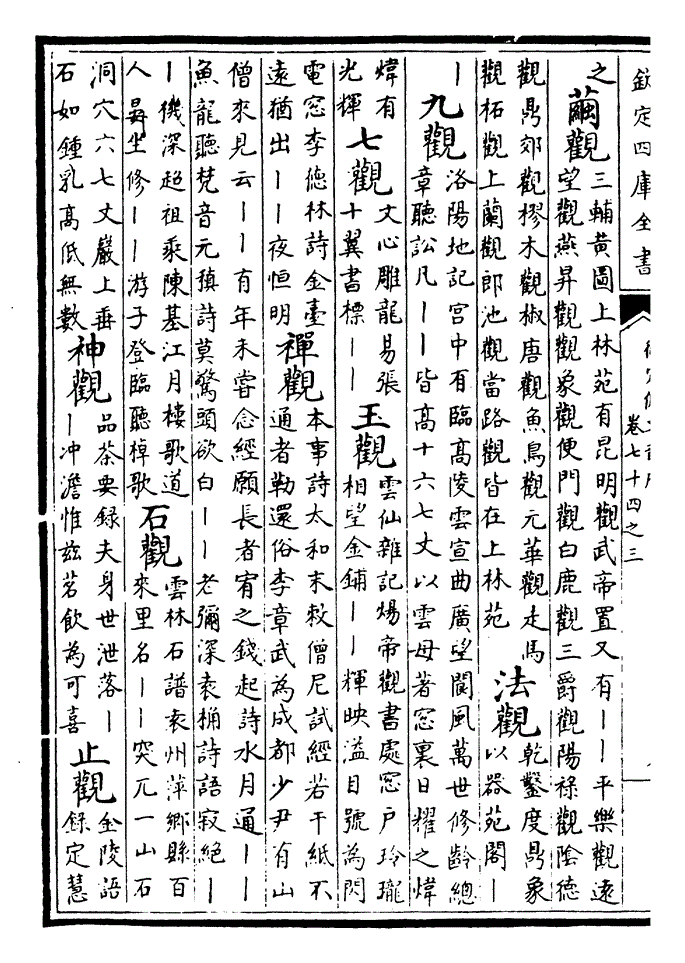 欽定四庫全書
卷七十四之三
之
繭觀
三輔黄圖上林苑有昆明觀武帝置又有——平樂觀遠
望觀燕昇觀觀象觀便門觀白鹿觀三爵觀陽祿觀陰德
觀鼎郊觀樛木觀椒唐觀魚鳥觀元華觀走馬
觀柘觀上蘭觀郎池觀當路觀皆在上林苑
法觀
乾鑿度鼎象
以器苑閣—
—
九觀
洛陽地記宮中有臨高陵雲宣曲廣望閬風萬世修齡總
章聽訟凡——皆高十六七丈以雲母著窓裏日耀之煒
煒有
光輝
七觀
文心雕龍易張
十翼書標——
玉觀
雲仙雜記煬帝觀書處窓戶玲瓏
相望金鋪——輝映溢目號為閃
電窓李德林詩金臺
遠猶出——夜恒明
禪觀
本事詩太和末敕僧尼試經若干紙不
通者勒還俗李章武為成都少尹有山
僧來見云——有年未嘗念經願長者宥之錢起詩水月通——
魚龍聽梵音元稹詩莫驚頭欲白——老彌深袁桷詩語寂絕—
—機深超祖乘陳基江月樓歌道
人昇坐修——游子登臨聽棹歌
石觀
雲林石譜袁州萍鄉縣百
來里名——突兀一山石
洞穴六七丈巖上垂
石如鍾乳高低無數
神觀
品茶要錄夫身世泄落—
—冲澹惟兹茗飲為可喜
止觀
金陵語
錄定慧